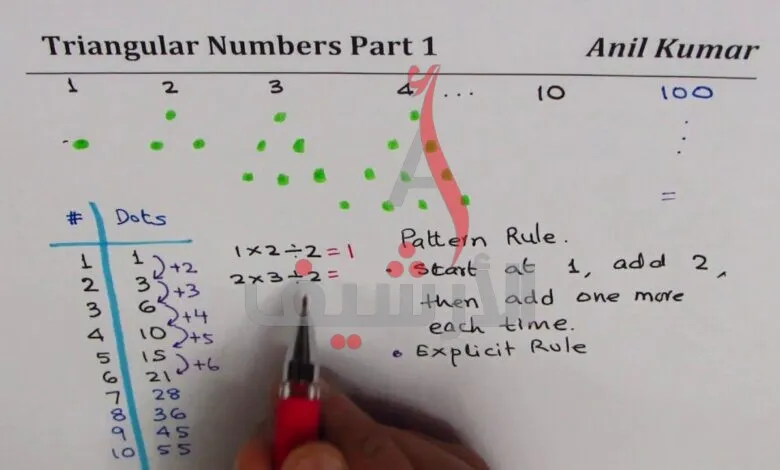 Triangular Numbers Part 1 Anil Kumar
1 2 3 4 ... 10 100
=
# Dots
1 1 +2
2 3 +3
3 6 +4
4 10 +5
5 15 +6
6 21
7 28
8 36
9 45
10 55
1 × 2 ÷ 2 = 1
2 × 3 ÷ 2 =
Pattern Rule.
• Start at 1, add 2,
then add one more
each time.
• Explicit Rule
الأرشيف